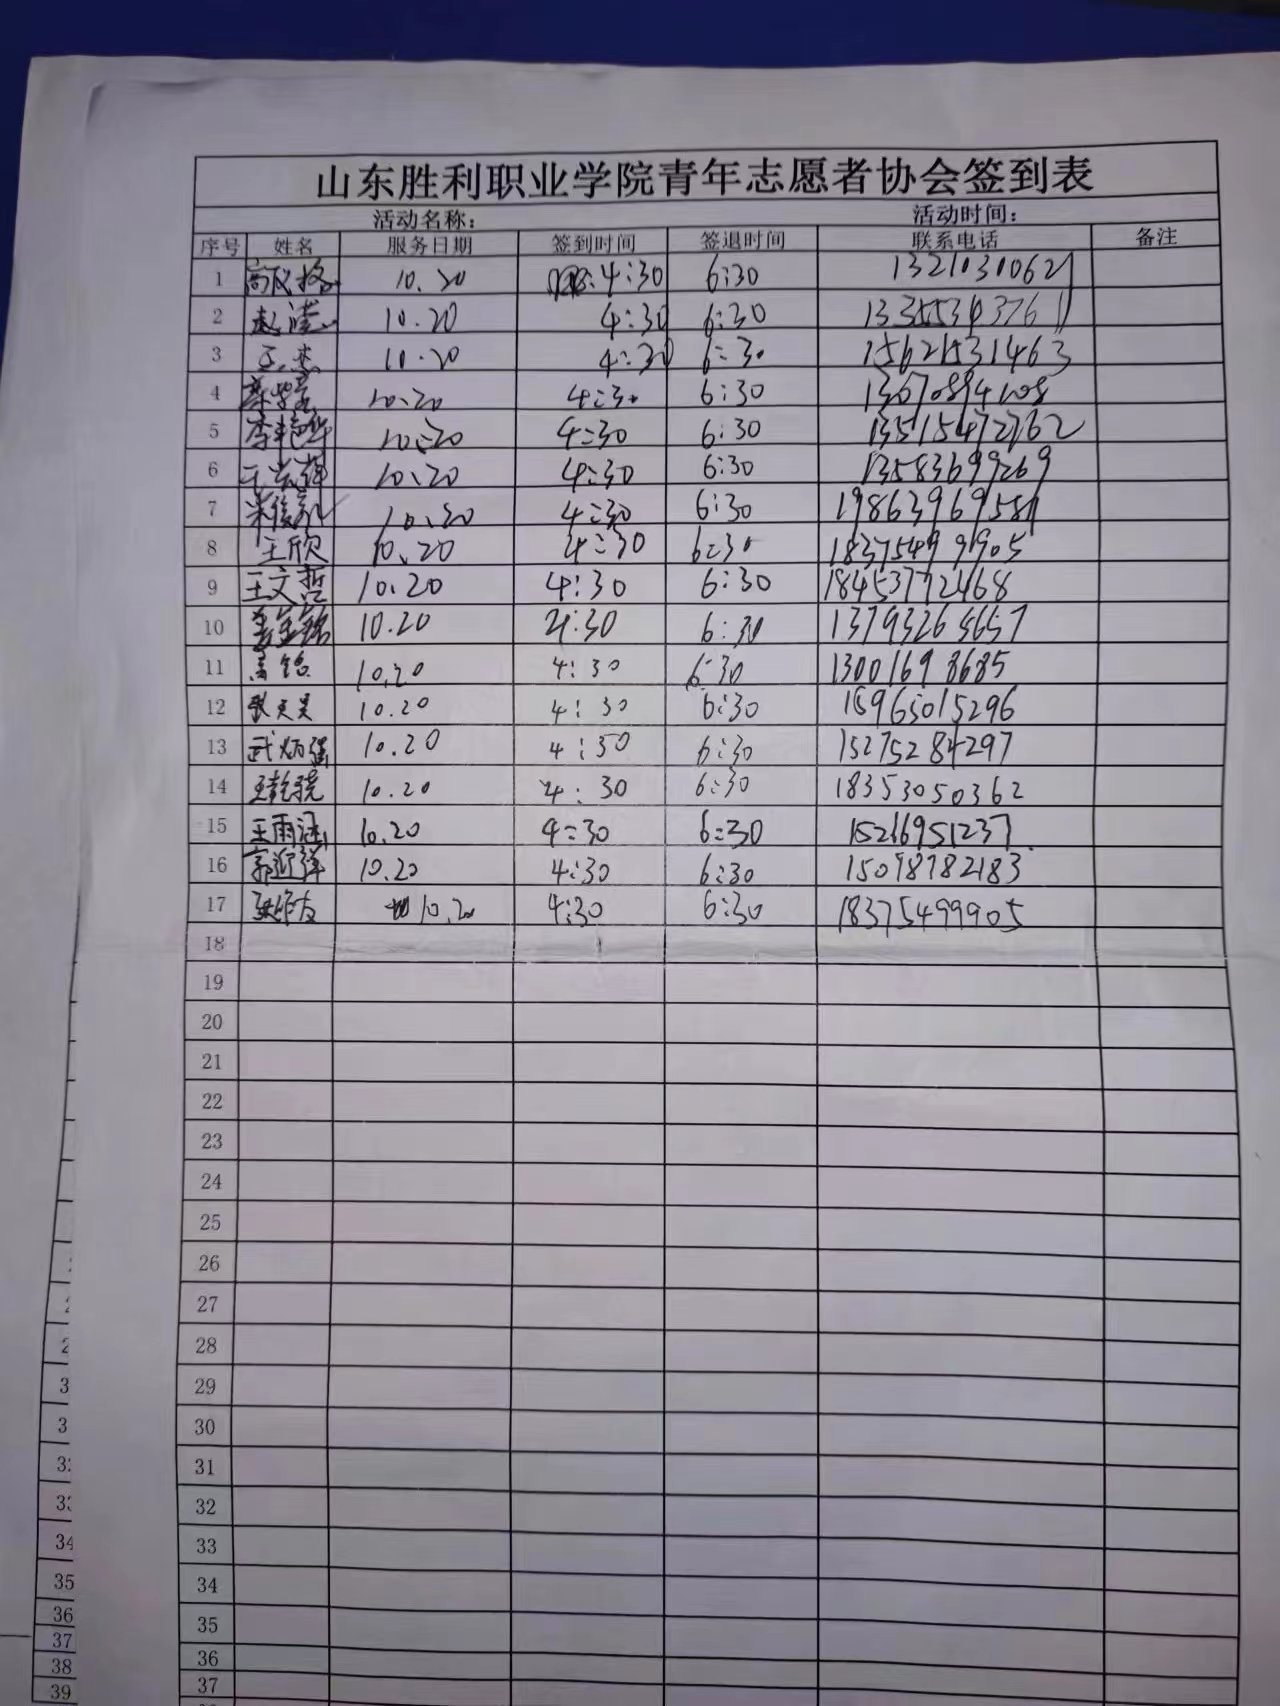 山东胜利职业学院青年志愿者协会签到表
活动名称： 活动时间：
序号 姓名 服务日期 签到时间 签退时间 联系电话 备注
1 10.20 4:30 6:30 13210310621
2 10.20 4:30 6:30
3 王杰 10.20 4:30 6:30 15621531463
4 10.20 4:30 6:30
5 李艳华 10.20 4:30 6:30 13515472762
6 10.20 4:30 6:30 13583699269
7 10.20 4:30 6:30 19863969581
8 王欣 10.20 4:30 6:30 18375499905
9 王文哲 10.20 4:30 6:30 18453772468
10 10.20 4:30 6:30 13793265657
11 10.20 4:30 6:30 13001698685
12 10.20 4:30 6:30 15965015296
13 武炳强 10.20 4:30 6:30 15275284297
14 10.20 4:30 6:30 18353050362
15 王雨涵 10.20 4:30 6:30 15266951237
16 10.20 4:30 6:30 15098782183
17 10.20 4:30 6:30 18375499905
18
19
20
21
22
23
24
25
26
27
28
29
30
31
32
33
34
35
36
37
34
35
36
37
38
39